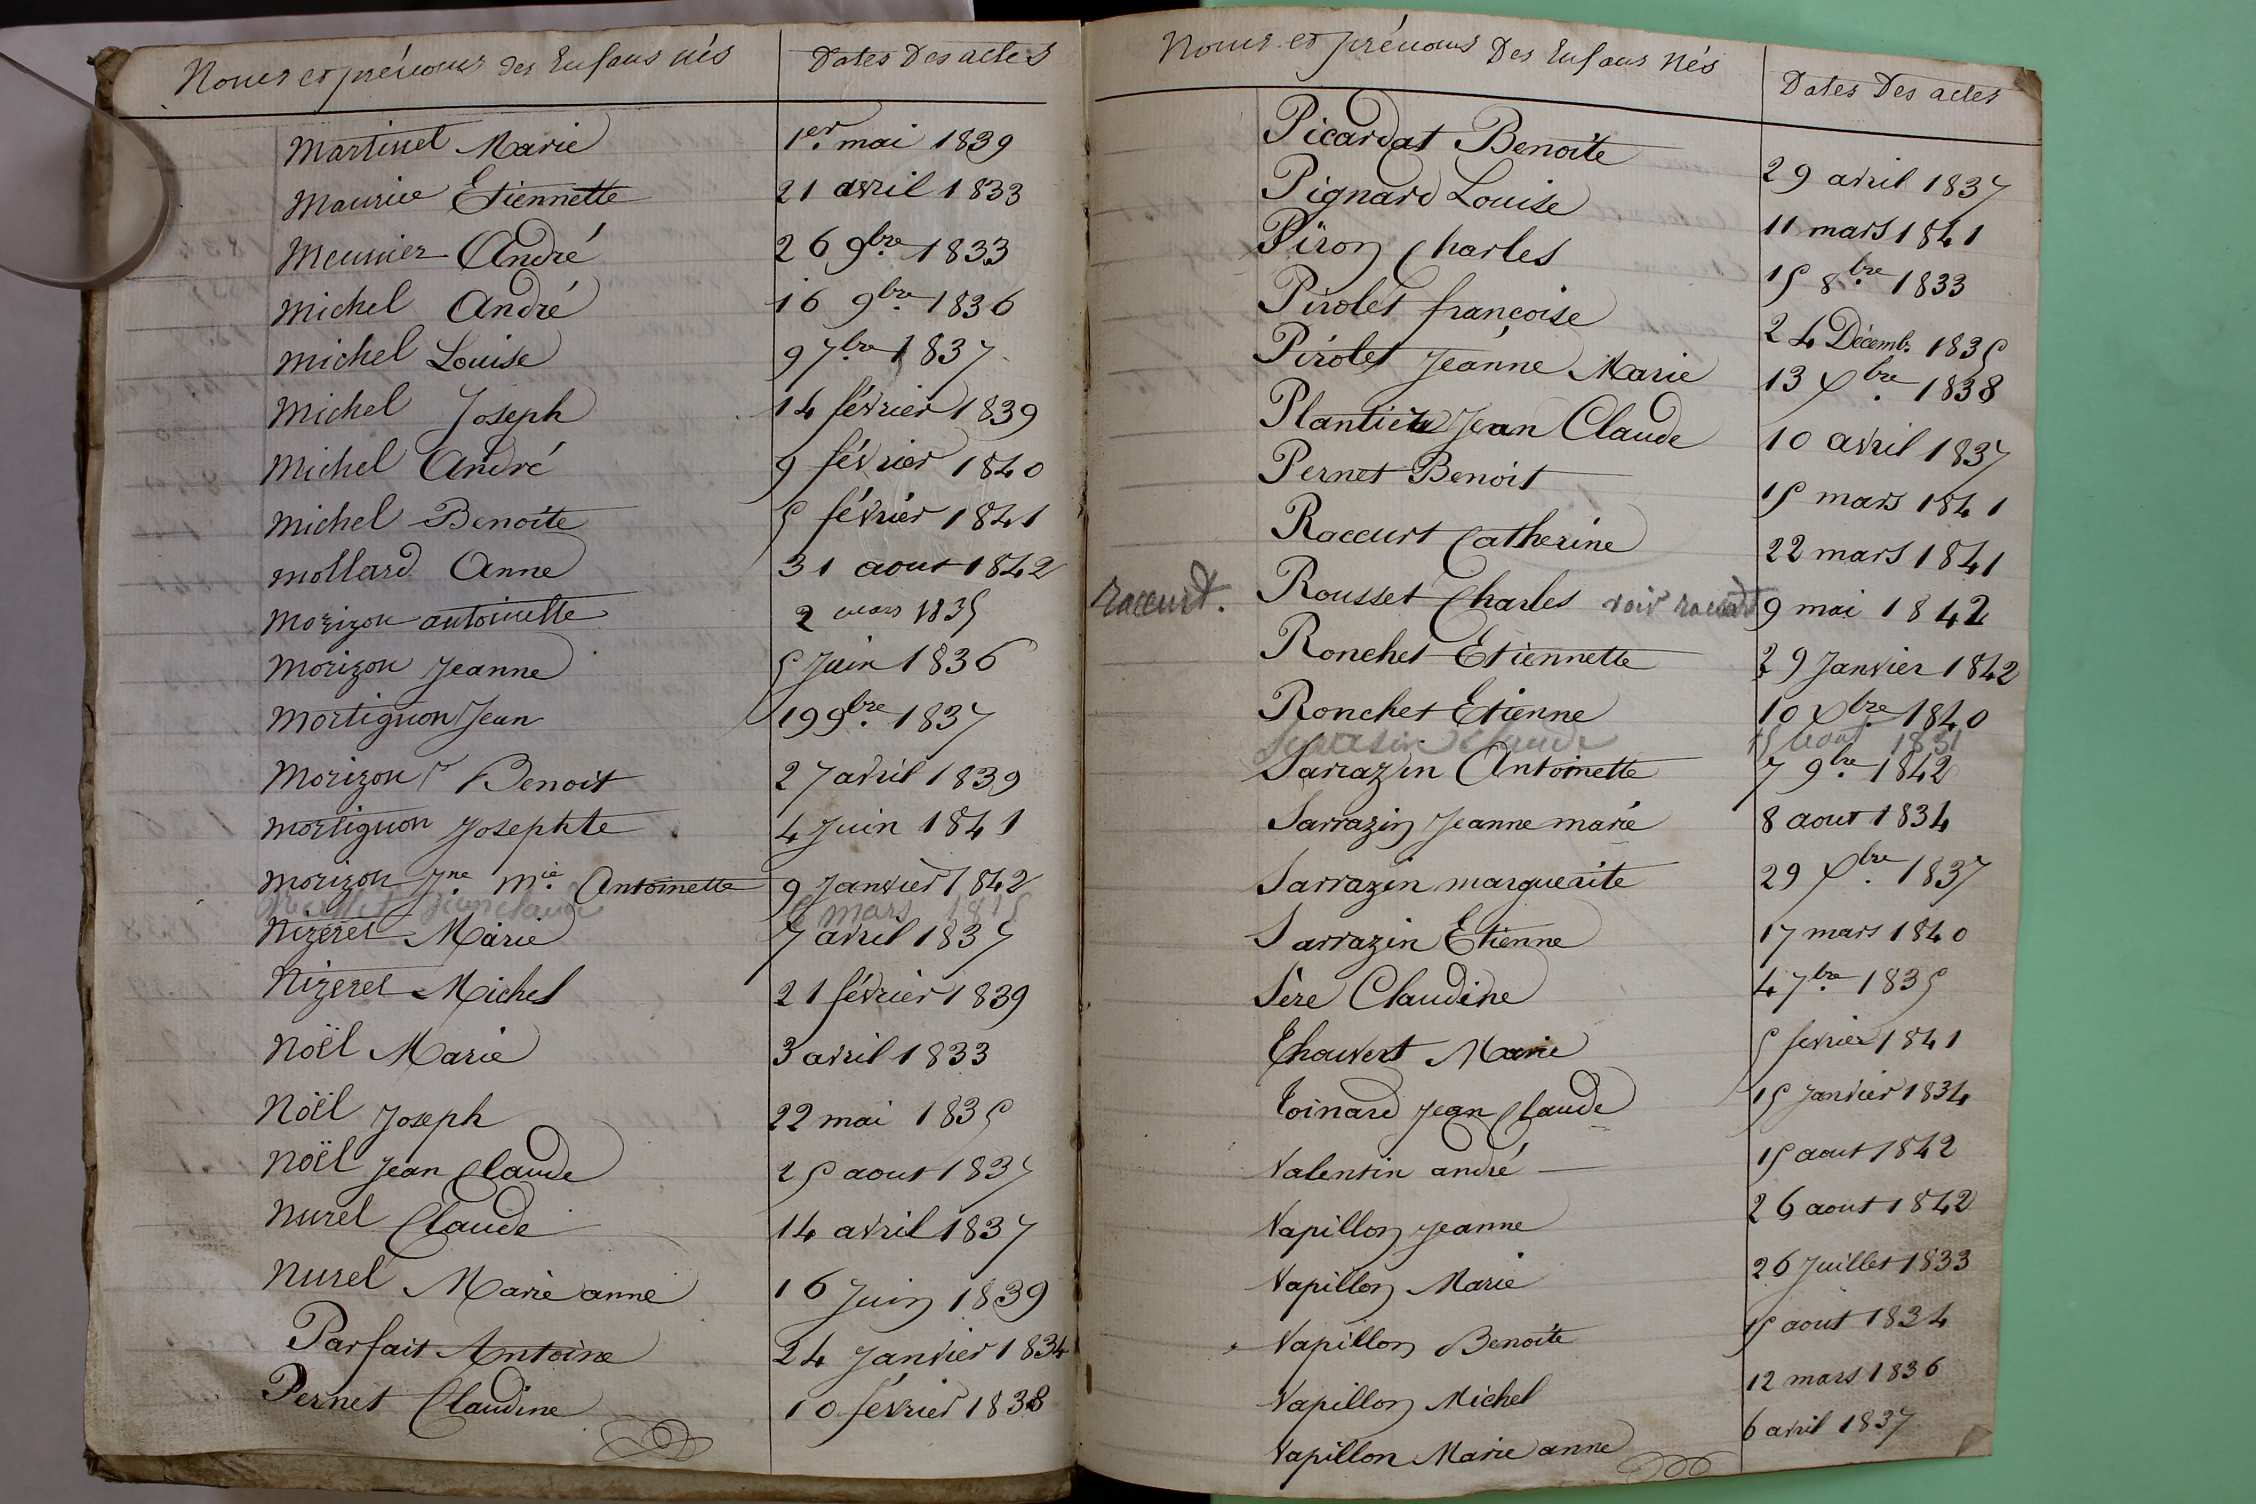 Noms et prénoms des Enfans nés Dates Des actes
Martinet Marie 1er. mai 1839
Maurice Etiennette 21 avril 1833
Meunier André 26 9bre. 1833
Michel André 16 9bre. 1836
Michel Louise 9 7bre. 1837
Michel Joseph 14 février 1839
Michel André 9 février 1840
Michel Benoite 5 février 1841
Mollard Anne 31 aout 1842
Morizon antoinette 2 mars 1835
Morizon Jeanne 5 Juin 1836
Mortignon Jean 19 9bre. 1837
Morizon Benoit 27 avril 1839
Mortignon Josephte 4 Juin 1841
Morizon Jne. Mie. Antoinette 9 Janvier 1842
jean claude 6 mars 1835
Nizeret Marie 7 avril 1837
Nizeret Michel 21 février 1839
Noël Marie 3 avril 1833
Noël Joseph 22 mai 1835
Noël Jean Claude 25 aout 1837
Nurel Claude 14 avril 1837
Nurel Marie anne 16 Juin 1839
Parfait Antoine 24 Janvier 1834
Pernet Claudine 10 février 1838
Noms et prénoms Des Enfans Nés Dates Des actes
Picardat Benoite 29 avril 1837
Pignard Louise 11 mars 1841
Piron Charles 15 8bre. 1833
Pirolet françoise 24 Décemb. 1835
Pirolet Jeanne Marie 13 Xbre. 1838
Plantier Jean Claude 10 avril 1837
Pernet Benoit 15 mars 1841
Raccurt Catherine 22 mars 1841
raccurt. Rousset Charles voir raccurt 9 mai 1842
Ronchet Etiennette 29 Janvier 1842
Ronchet Etienne 10 Xbre 1840
Sarrasin Claude 15 aout 1831
Sarrazin Antoinette 7 9bre. 1842
Sarrazin Jeanne marie 8 aout 1834
Sarrazin marguerite 29 Xbre. 1837
Sarrazin Etienne 17 mars 1840
Sère Claudine 4 7bre. 1835
Thouvert Marie 5 fevrier 1841
Toinard Jean Claude 15 Janvier 1834
Valentin andré 15 aout 1842
Vapillon Jeanne 26 aout 1842
Vapillon Marie 26 Juillet 1833
Vapillon Benoite 15 aout 1834
Vapillon Michel 12 mars 1836
Vapillon Marie anne 6 avril 1837